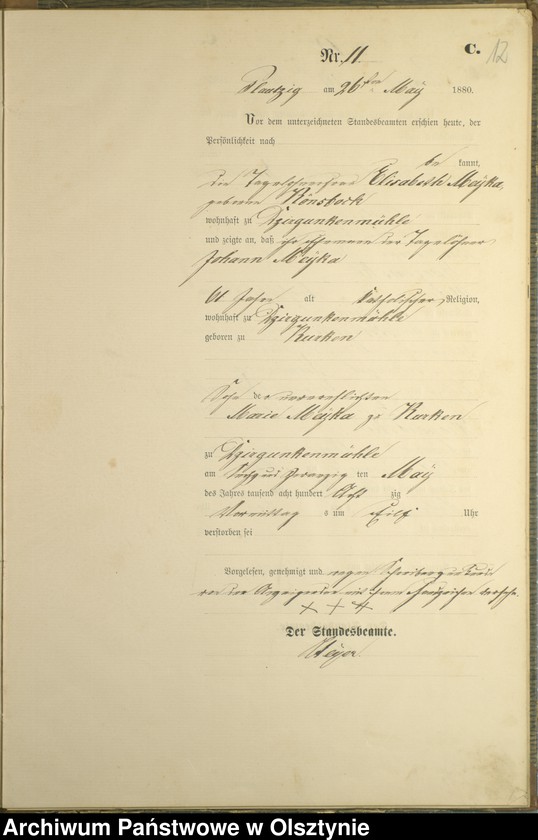 C. 12
Nr. 11
Plautzig am 26ten May 1880.
Vor dem unterzeichneten Standesbeamten erschien heute, der
Persönlichkeit nach
be kannt,
die Tagelöhnerfrau Elisabeth Majka,
geborene Rönsbeck
wohnhaft zu Dziergunkenmühle
und zeigte an, daß ihr Ehemann der Tagelöhner
Johann Majka
61 Jahr alt katholischer Religion,
wohnhaft zu Dziergunkenmühle
geboren zu Kurken
Sohn der verehelichten
Marie Majka zu Kurken
zu Dziergunkenmühle
am Sechs und Zwanzig ten May
des Jahres tausend acht hundert Acht zig
Vormittag s um Eilf Uhr
verstorben sei
Vorgelesen, genehmigt und wegen Schreibensunkunde
von der Anzeigenden mit ihrem Handzeichen versehen.
+ + +
Der Standesbeamte.